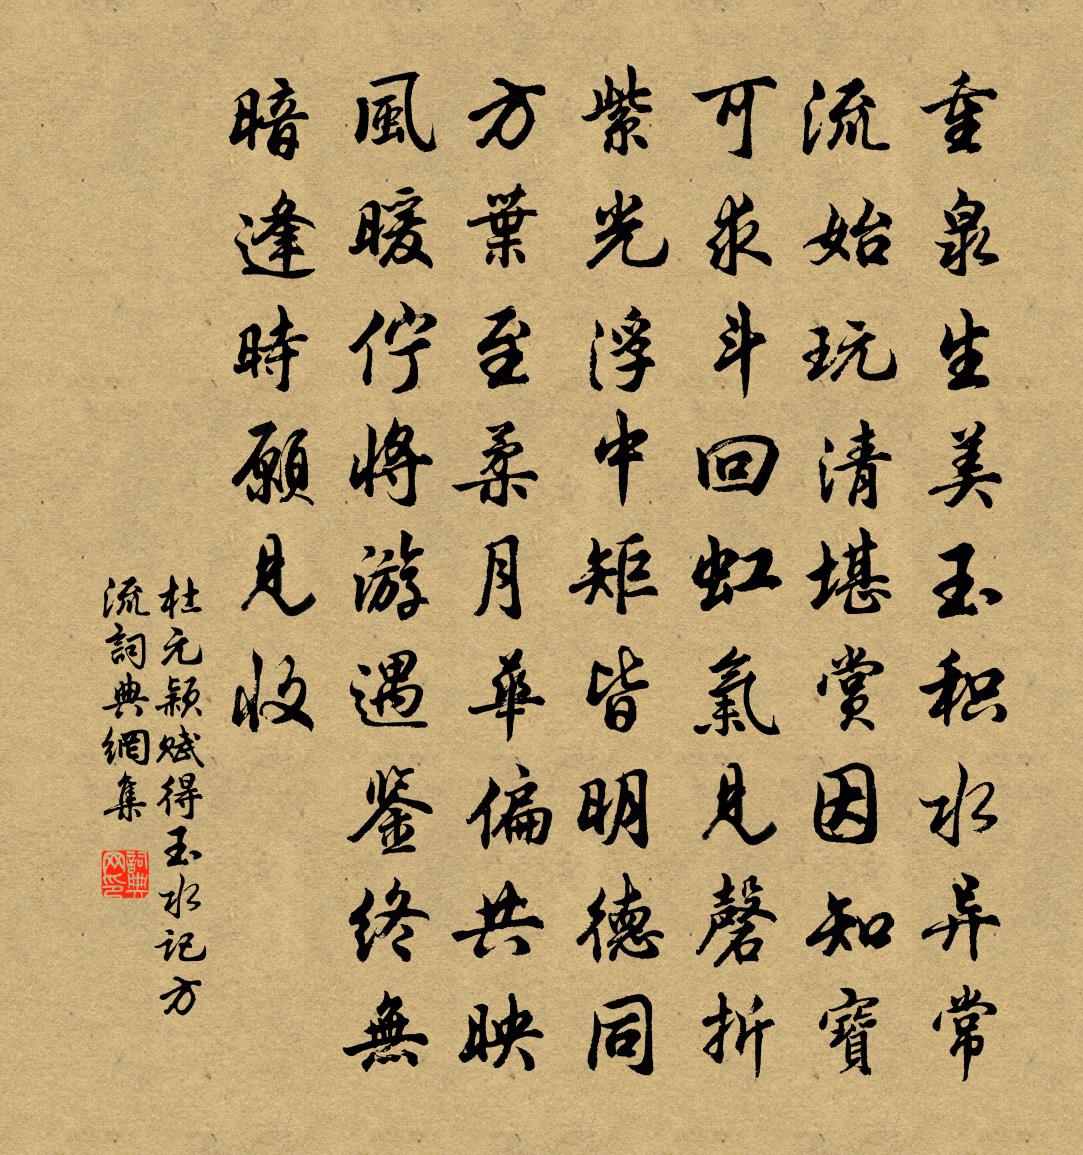 重泉生美玉积水异常
流始玩清堪赏因知寶
可求斗回虹氣見磬折
紫光浮中矩皆明德同
方葉至柔月華偏共映
風暖佇將游遇鉴終無
暗逢時願見收
杜元颖赋得玉水记方
流詞典網集
詞典网印